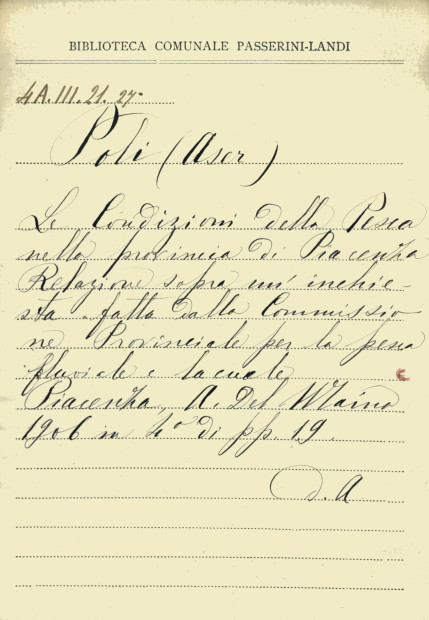 BIBLIOTECA COMUNALE PASSERINI-LANDI
4A.III.21.27.
Poli (Aser)
Le Condizioni della Pesca
nella provincia di Piacenza
Relazione sopra un' inchie-
sta fatta dalla Commissio-
ne Provinciale per la pesca
fluviale e lacuale
Piacenza, A. Del Maino
1906 in 4º di pp. 19.
D. A